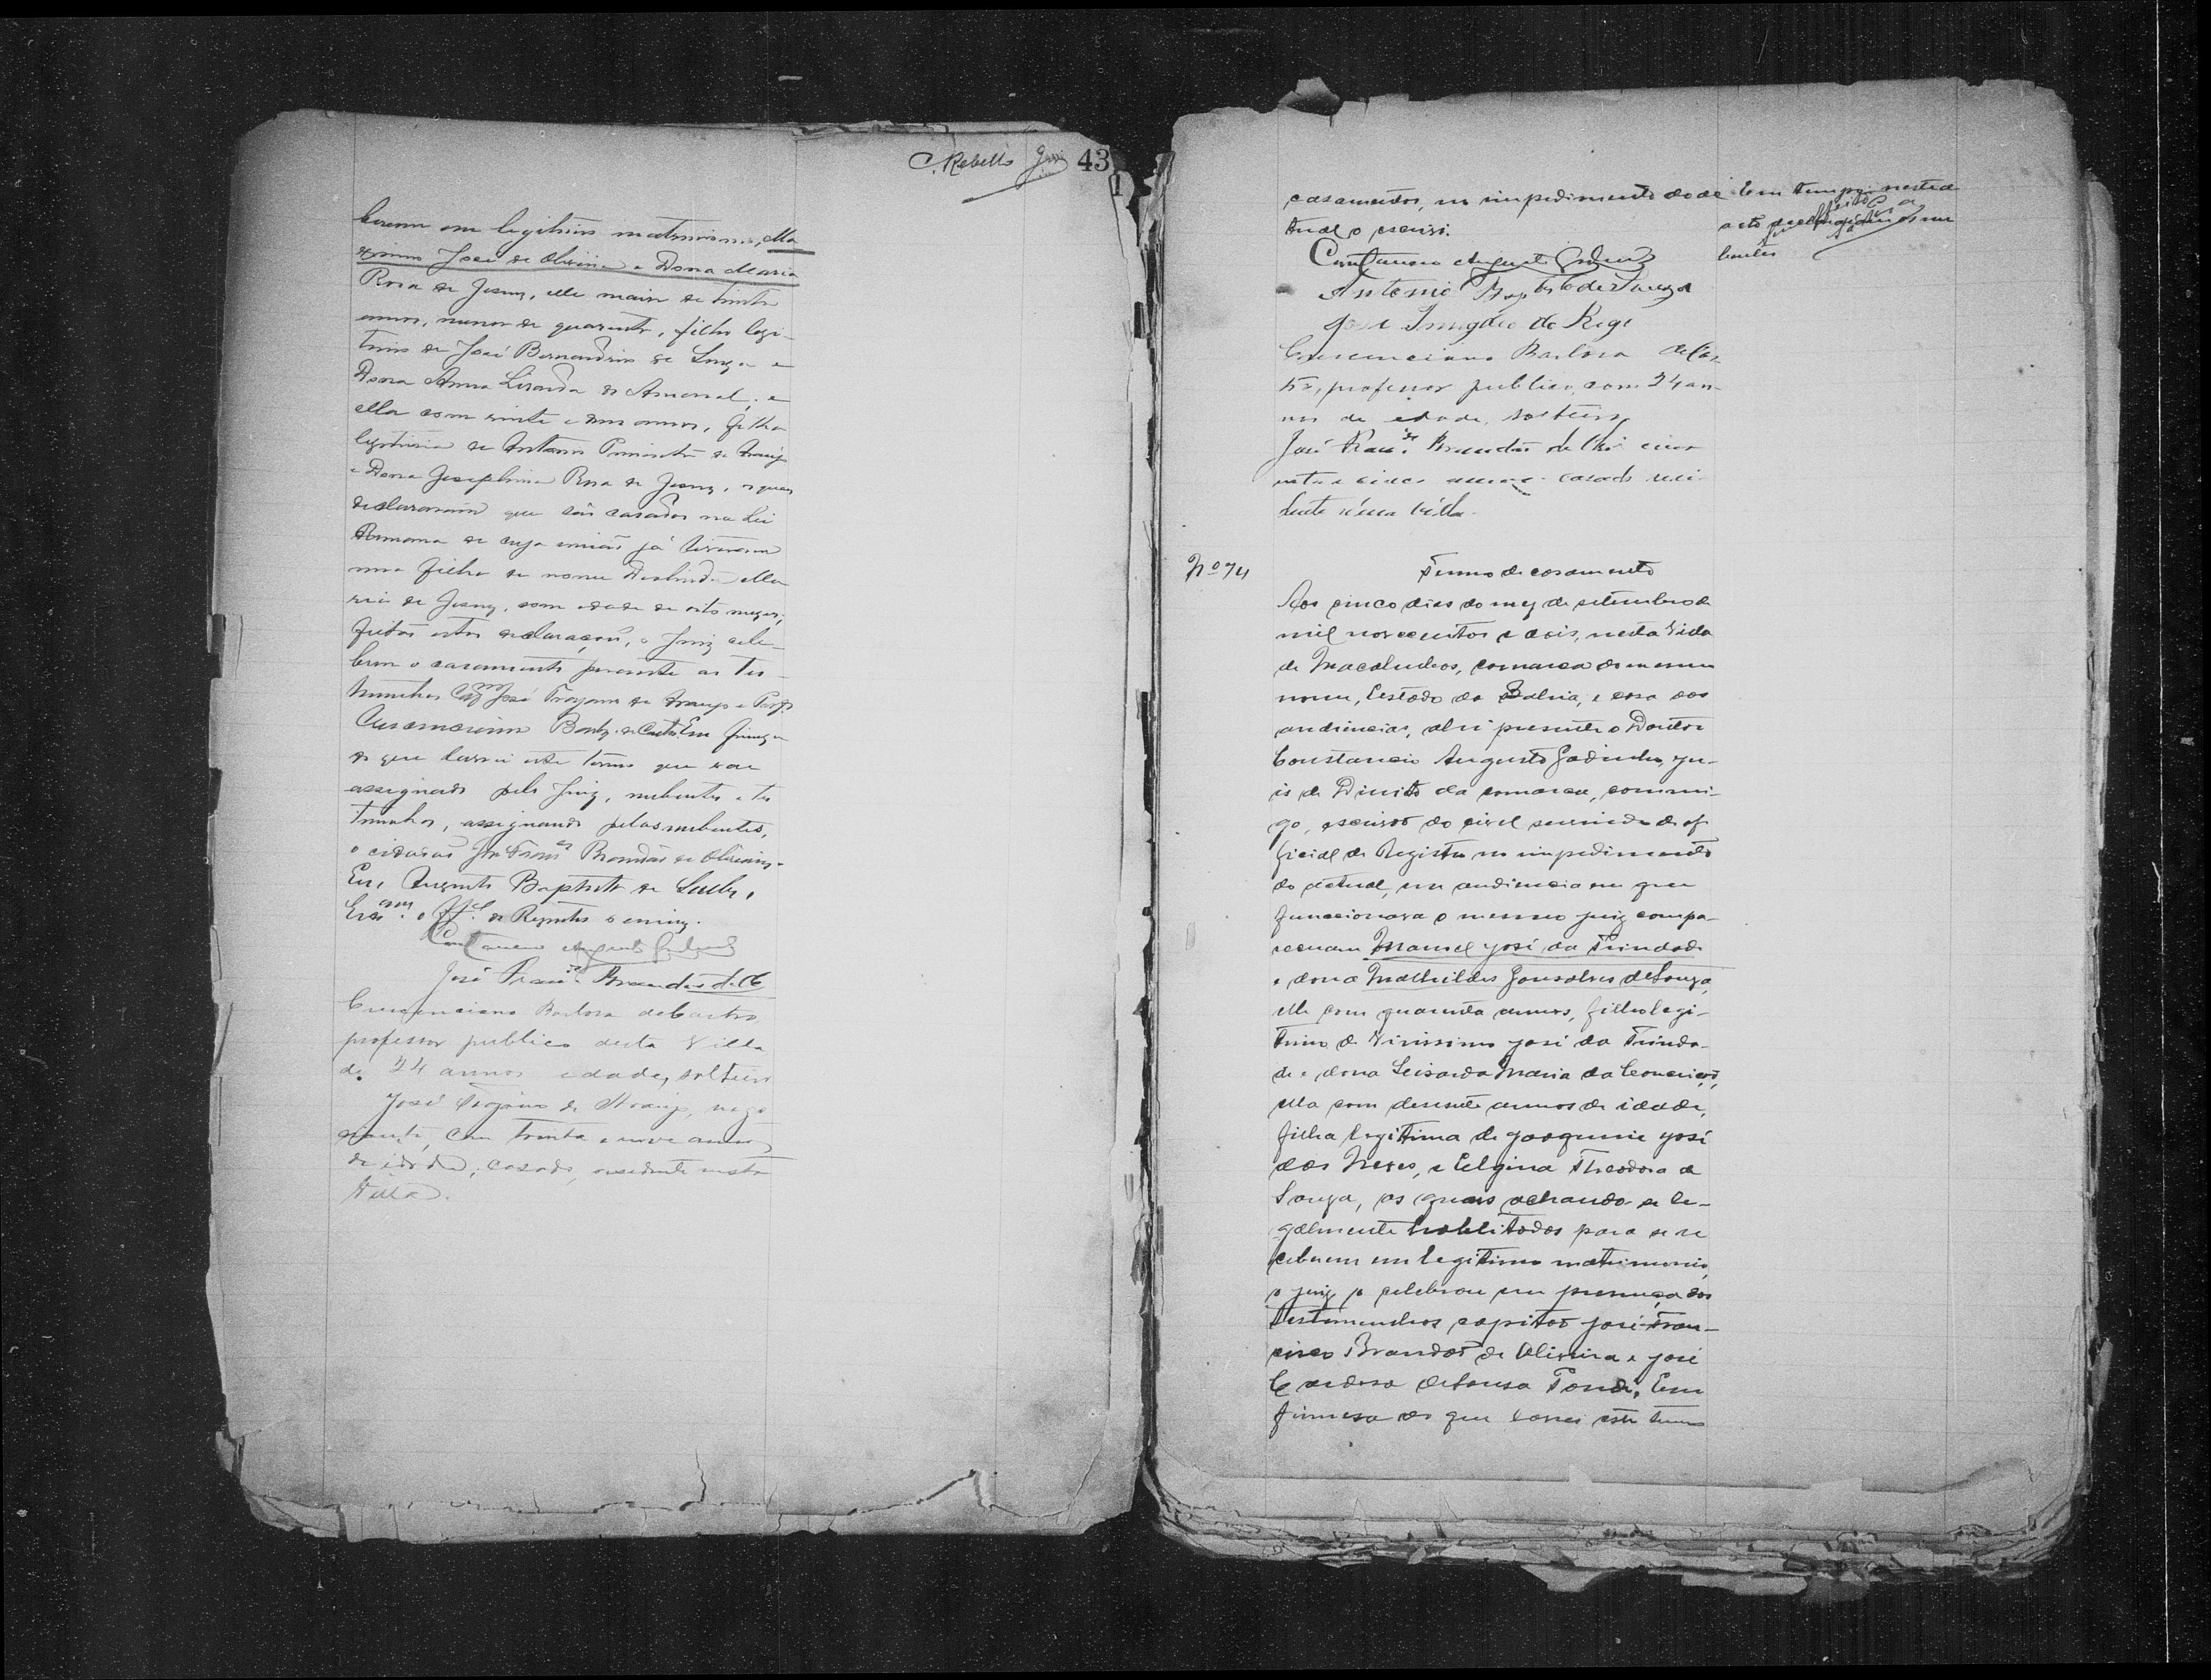 C. Rebello Juiz 43
1
berem em legitimo matrimonio, Ma
ximo José de Oliveira e Dona Maria
Rosa de Jesus, elle maior de trinta
annos, menor de quarenta, filho legi-
timo de José Bernardino de Souza e
Dona Anna Lizarda do Amaral; e
ella com vinte e dous annos, filha
legitima de Antonio Pimenta de Araujo
e Dona Josephina Rosa de Jesus, os quaes
declararam que são casados na Lei
Romana de cuja união já tiveram
uma filha de nome Deolinda Ma
ria de Jesus, com idade de oito mezes;
feitas estas declarações, o Juiz cele-
brou o casamento perante as tes-
temunhas Cap.m José Trajano de Araujo e Prof.
Crescenciano Barb. de Castro. Em firmeza
do que lavrei este termo que vae
assignado pelo Juiz, nubentes e tes
temunhas, assignando pelos nubentes,
o cidadão José Fran.co Brandão de Oliveira.
Eu, Augusto Baptista de
o Off.l do Registro o escrevy.
Constancio Augusto
José Fran.co Brandão de O
Crescenciano Barbosa de Castro
professor publico desta Villa
de 24 annos edade, solteiro
José Trajano de Araujo, nego
ciante, com trinta e nove annos
de idade, casado, residente nesta
Villa.
casamentos, no impedimento do ac
tual o escrevi.
Constancio Augusto
Antonio Bap.ta de Souza
José do Rego
Crescenciano Barbosa de Cas-
tro, professor publico, com 24 an-
nos de edade, solteiro
José Fran.co Brandão de Oli cinco
enta e cinco annos casado resi-
dente n'essa Villa.
Em tempo: neste
acto feito
bentes
Nº 74
Termo de casamento
Aos cinco dias do mez de setembro de
mil novecentos e seis, nesta Villa
de Macahubas, comarca do mesmo
nome, Estado da Bahia, e casa das
audiencias, ahi presente o Doutor
Constancio Augusto Godinho, ju-
iz de Direito da comarca, commi-
go, escrivão do civel servindo de of
ficial do Registro no impedimento
do actual, em audiencia em que
funccionava o mesmo juiz compa-
receram Manoel José da Trindade
e dona Mathildes Gonsalves de Souza,
elle com quarenta annos, filho legi-
timo de Virissimo José da Trinda-
de e dona Leisarda Maria da Conceição,
ella com desesete annos de idade,
filha legitima de Joaquim José
das Neves, e Elgina Theodora de
Souza, os quaes achando-se le-
galmente habilitados para se re
ceberem em legitimo matrimonio,
o juiz o celebrou em presença das
testemunhas capitão José Fran-
cisco Brandão de Oliveira e José
Cardoso de Sousa Tondi, Em
firmesa do que lavrei este termo